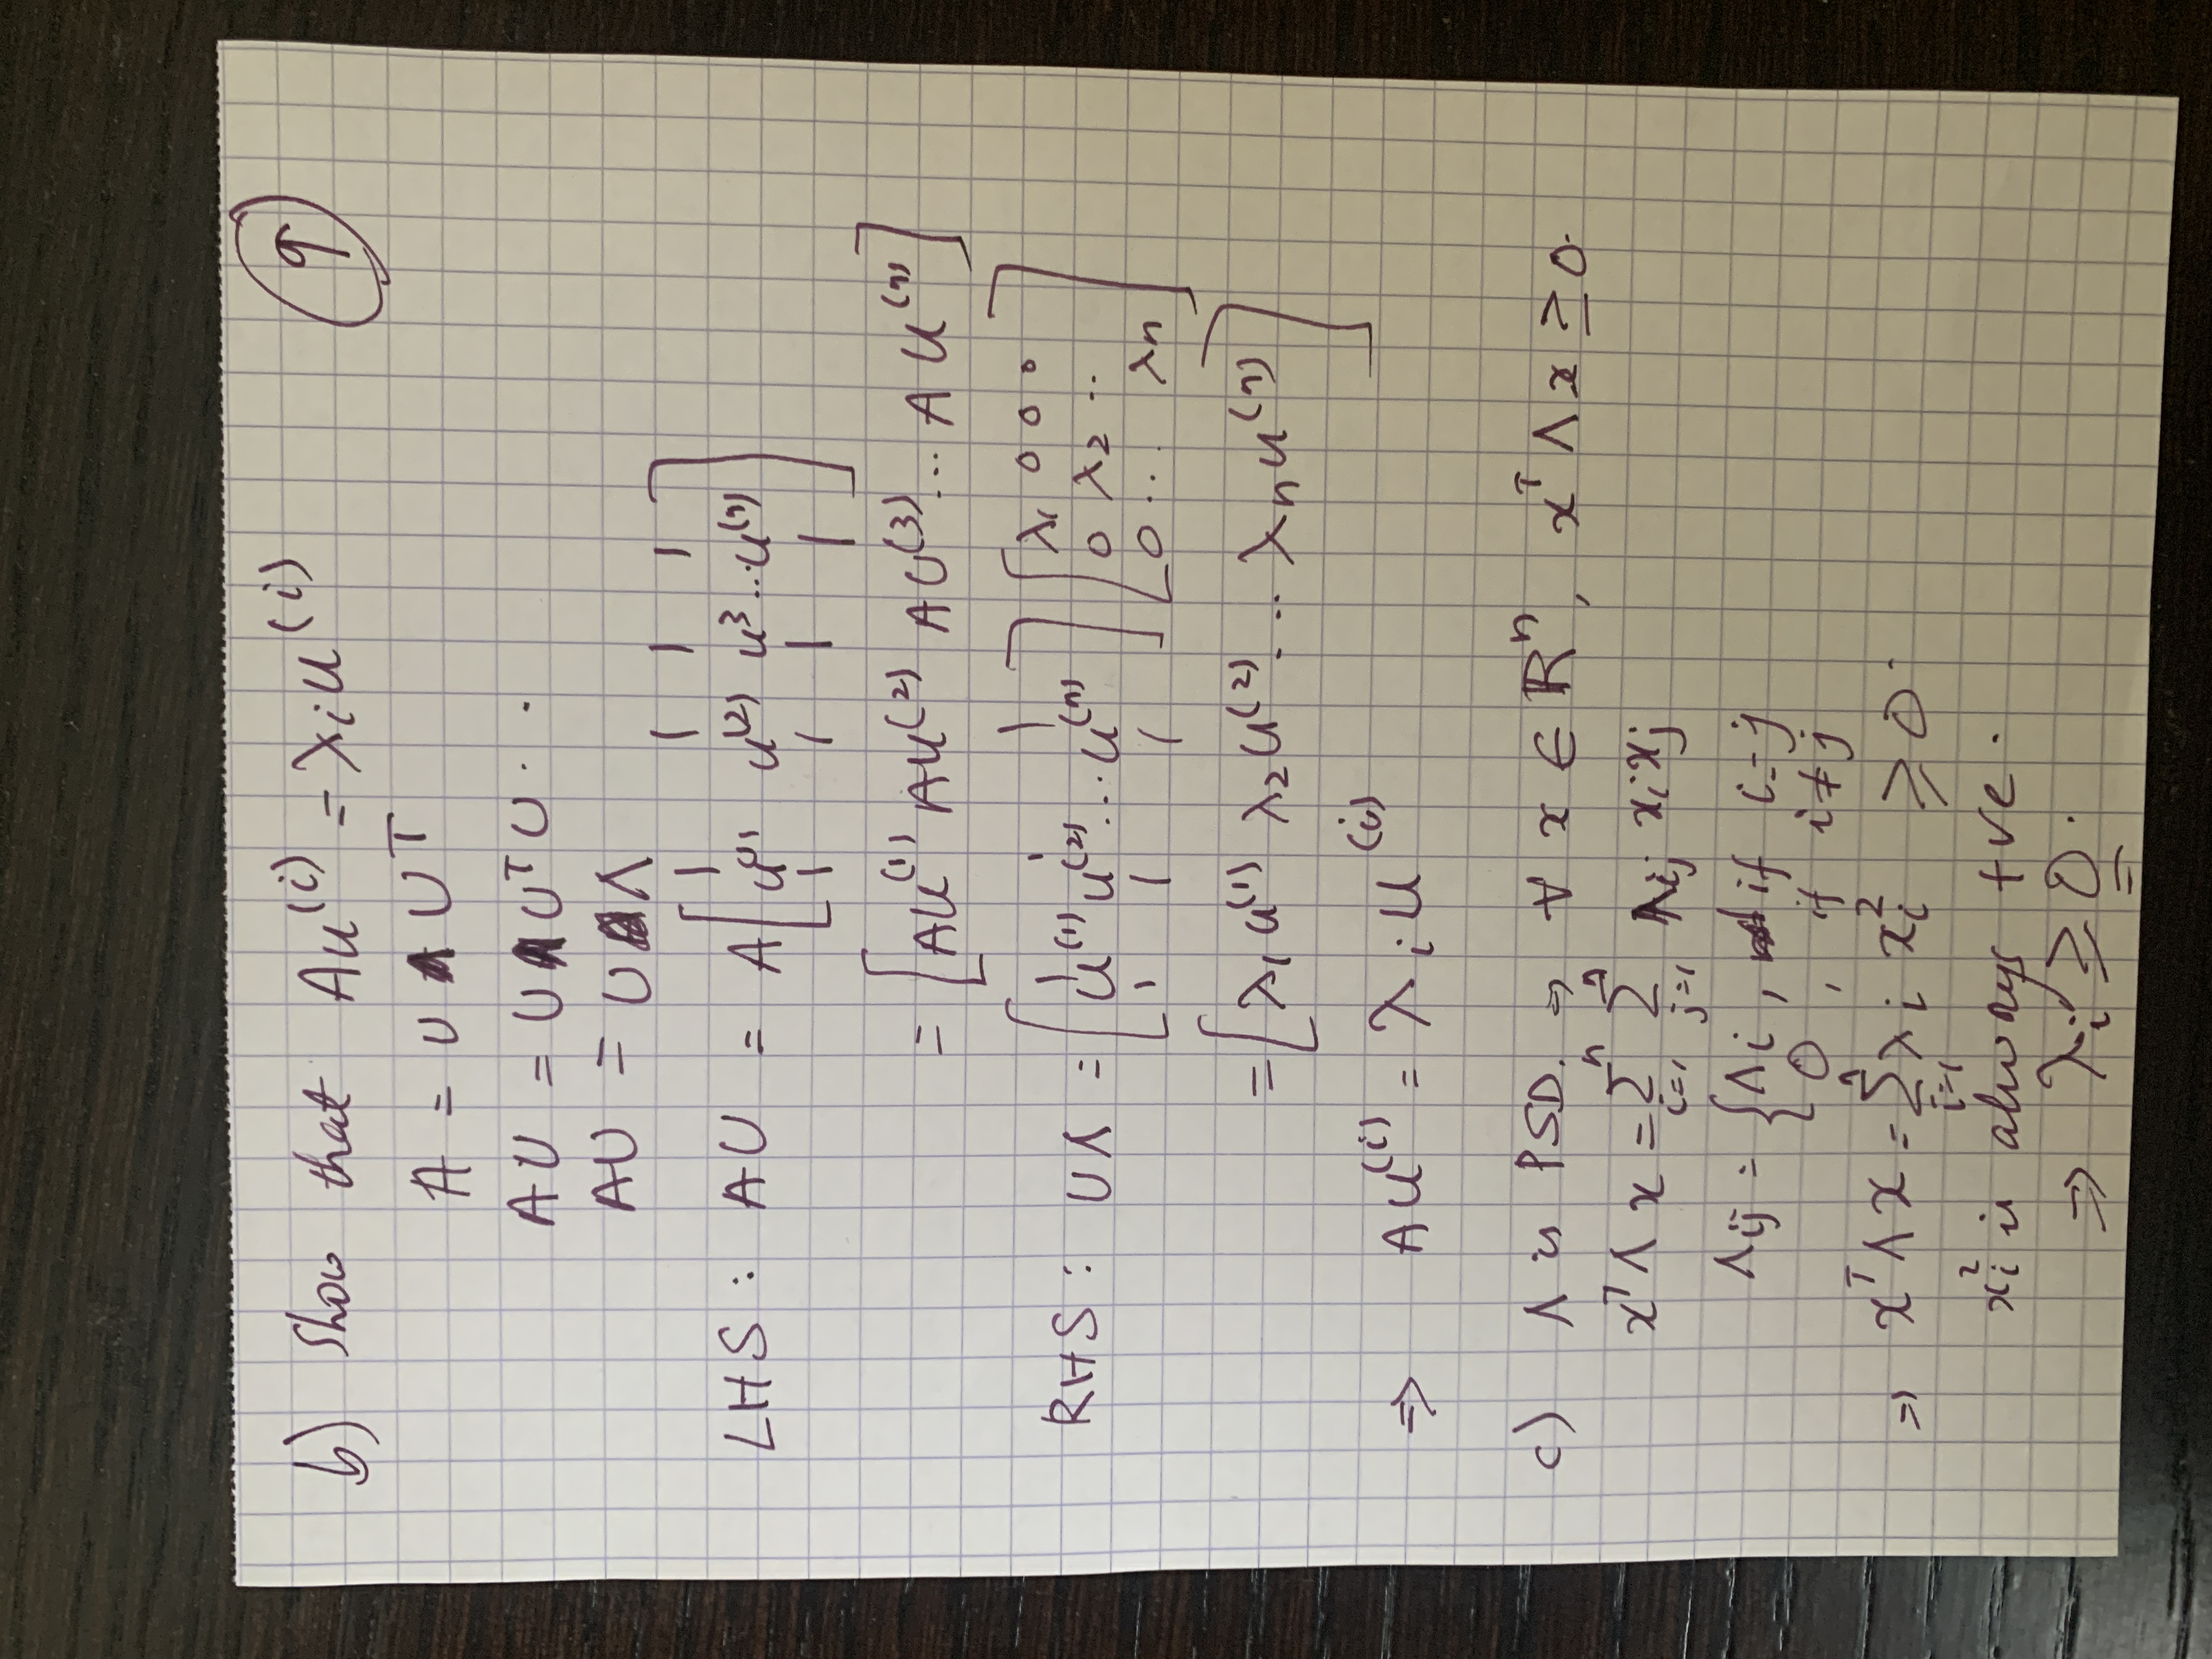 b) Show that Au^(i) = λ_i u^(i)
9
A = U Λ U^T
AU = U Λ U^T U
AU = U Λ
LHS : AU = A [u^(1) u^(2) u^3 ... u^(n)]
= [Au^(1) Au^(2) AU^(3) ... A u^(n)]
RHS : UΛ = [u^(1) u^(2) ... u^(n)] [λ_1 0 0 0
0 λ_2 ..
0 ... λ_n]
= [λ_1 u^(1) λ_2 u^(2) ... λ_n u^(n)]
⇒ Au^(i) = λ_i u^(i)
c) Λ is PSD. ⇒ ∀ x ∈ ℝ^n, x^T Λ x ≥ 0.
x^T Λ x = Σ_{i=1}^n Σ_{j=1}^n Λ_ij x_i x_j
Λ_ij = { Λ_i , if i = j
0 , if i ≠ j
⇒ x^T Λ x = Σ_{i=1}^n λ_i x_i^2 ≥ 0.
x_i^2 is always +ve.
⇒ λ_i ≥ 0.